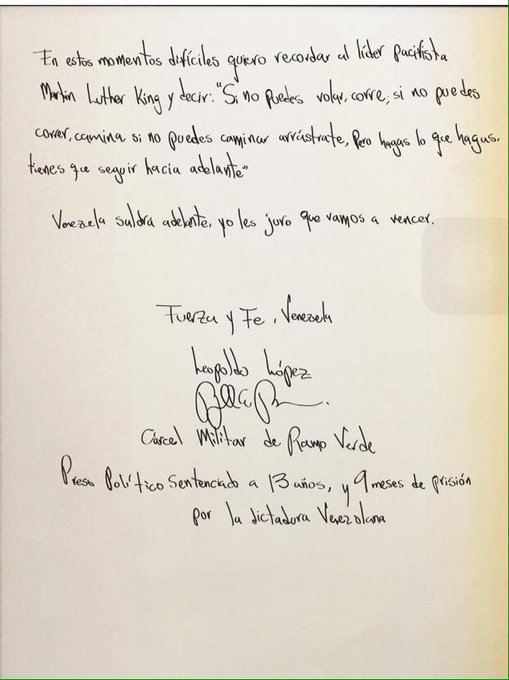 En estos momentos difíciles quiero recordar al líder pacifista
Martin Luther King y decir: "Si no puedes volar, corre, si no puedes
correr, camina si no puedes caminar arrástrate, Pero hagas lo que hagas.
tienes que seguir hacia adelante"
Venezuela saldra adelante, yo les juro que vamos a vencer.
Fuerza y Fe, Venezuela
Leopoldo López
Cárcel Militar de Ramo Verde
Preso Político Sentenciado a 13 años, y 9 meses de prisión
por la dictadura Venezolana